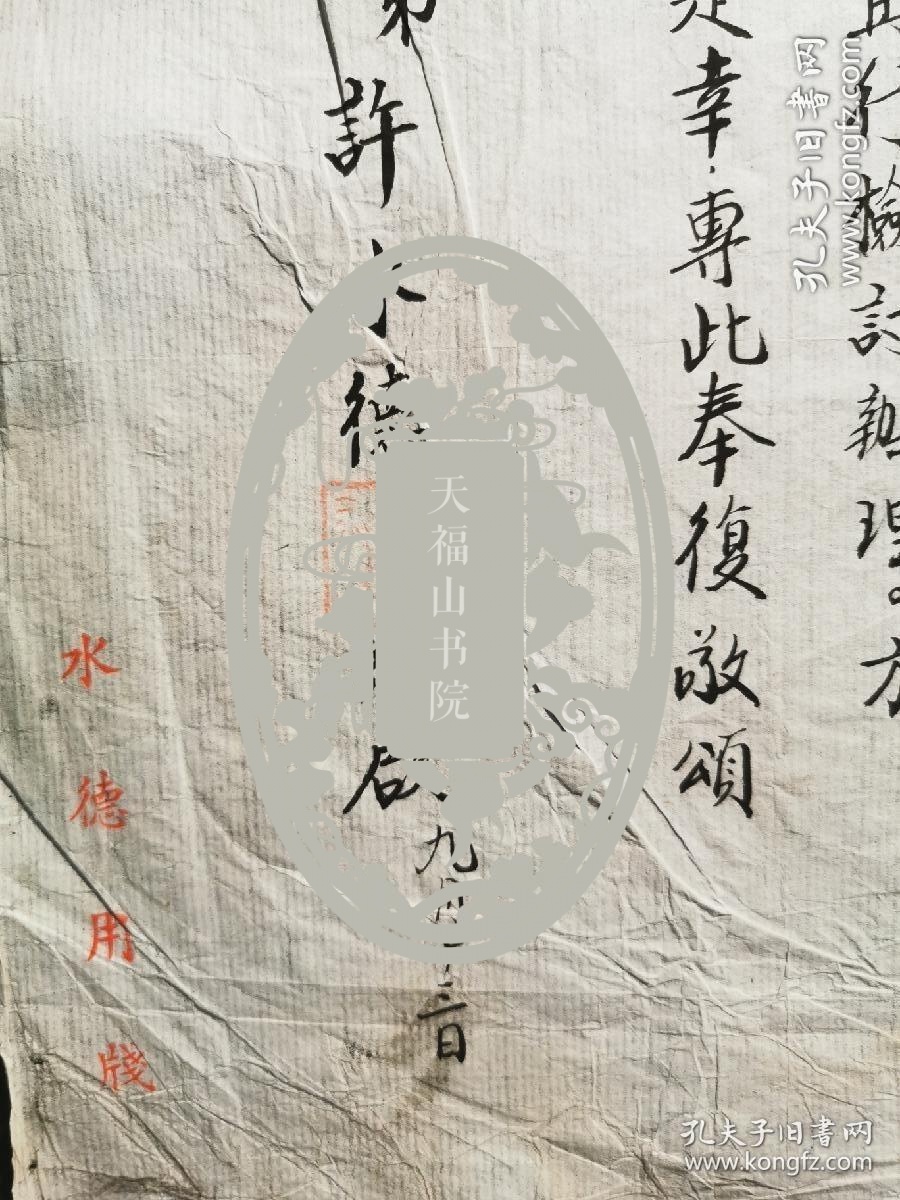 行檢討執理。方
是幸，專此奉復敬頌
弟許水德
啟
九月
三日
水德用牋
天福山书院
孔夫子旧书网
www.kongfz.com
孔夫子旧书网
www.kongfz.com